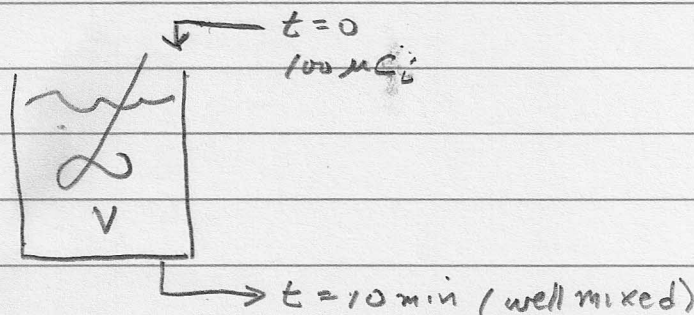 t=0
100 μCi
V
t=10 min (well mixed)